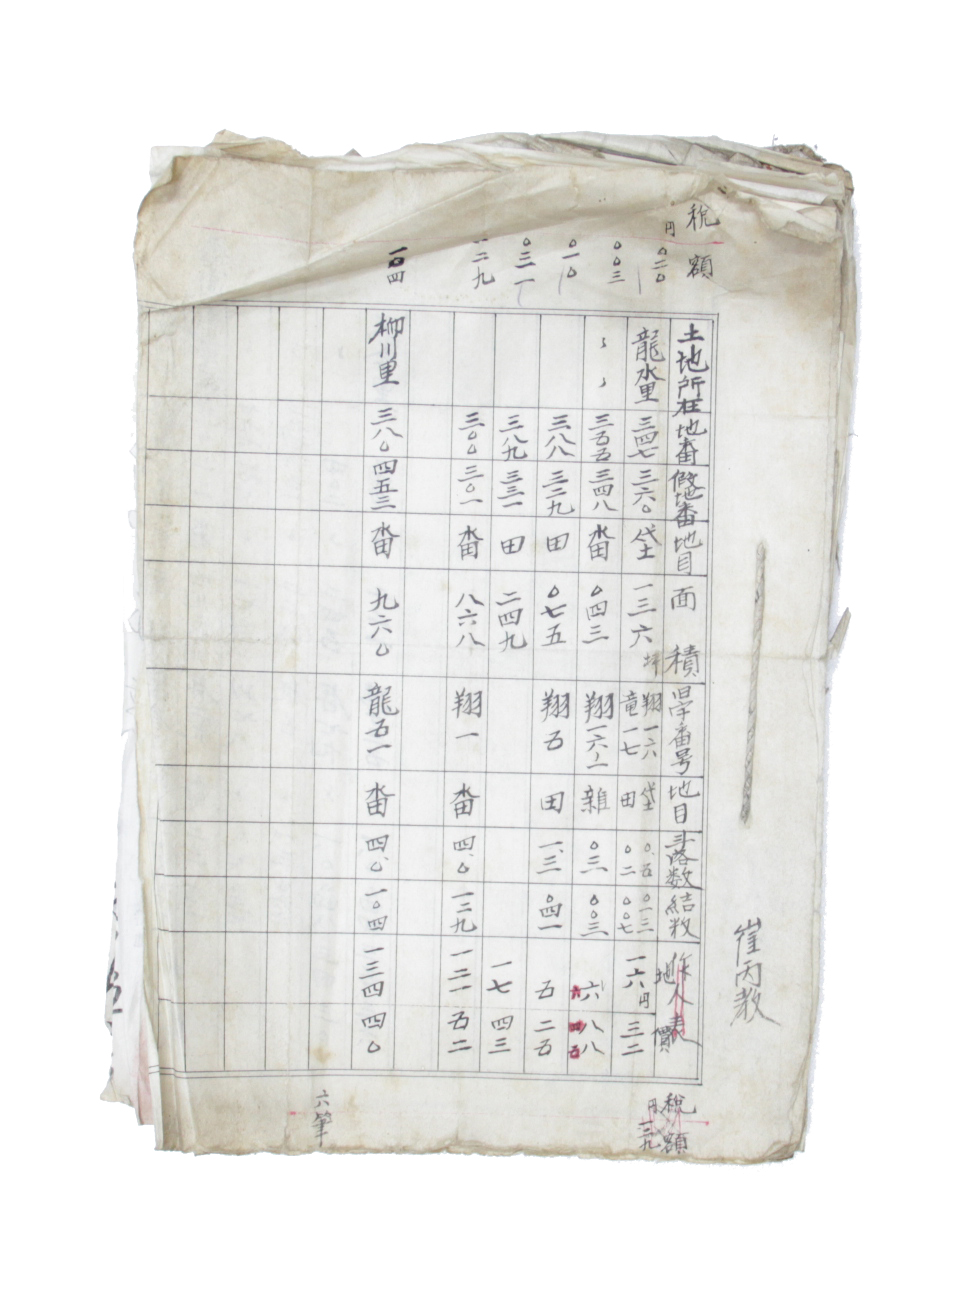 崔丙敎
稅額
土地所在 地番 假地番 地目 面積 字番号 地目 斗落数 結数 地價 稅額
円 〇二〇 龍水里 三四七 三六〇 垈 一三六坪 翔一六 竜一七 垈 田 〇.五 〇二 〇一三 〇〇七 一六円 三二 円 一三九
〇〇三 〃 〃 三五五 三四八 畓 〇四三 翔一六ノ一 雜 〇三 〇〇三 六 八八
〇一〇 三八八 三二九 田 〇七五 翔五 田 一.三 〇四一 五 二五
〇三一 三八九 三三一 田 二四九 一七 四三
一二九 三〇〇 三〇一 畓 八六八 翔一 畓 四.〇 一二九 一二一 五二
一〇四 柳川里 三八〇 四五三 畓 九六〇 龍五一 畓 四.〇 一〇四 一三四 四〇
六筆